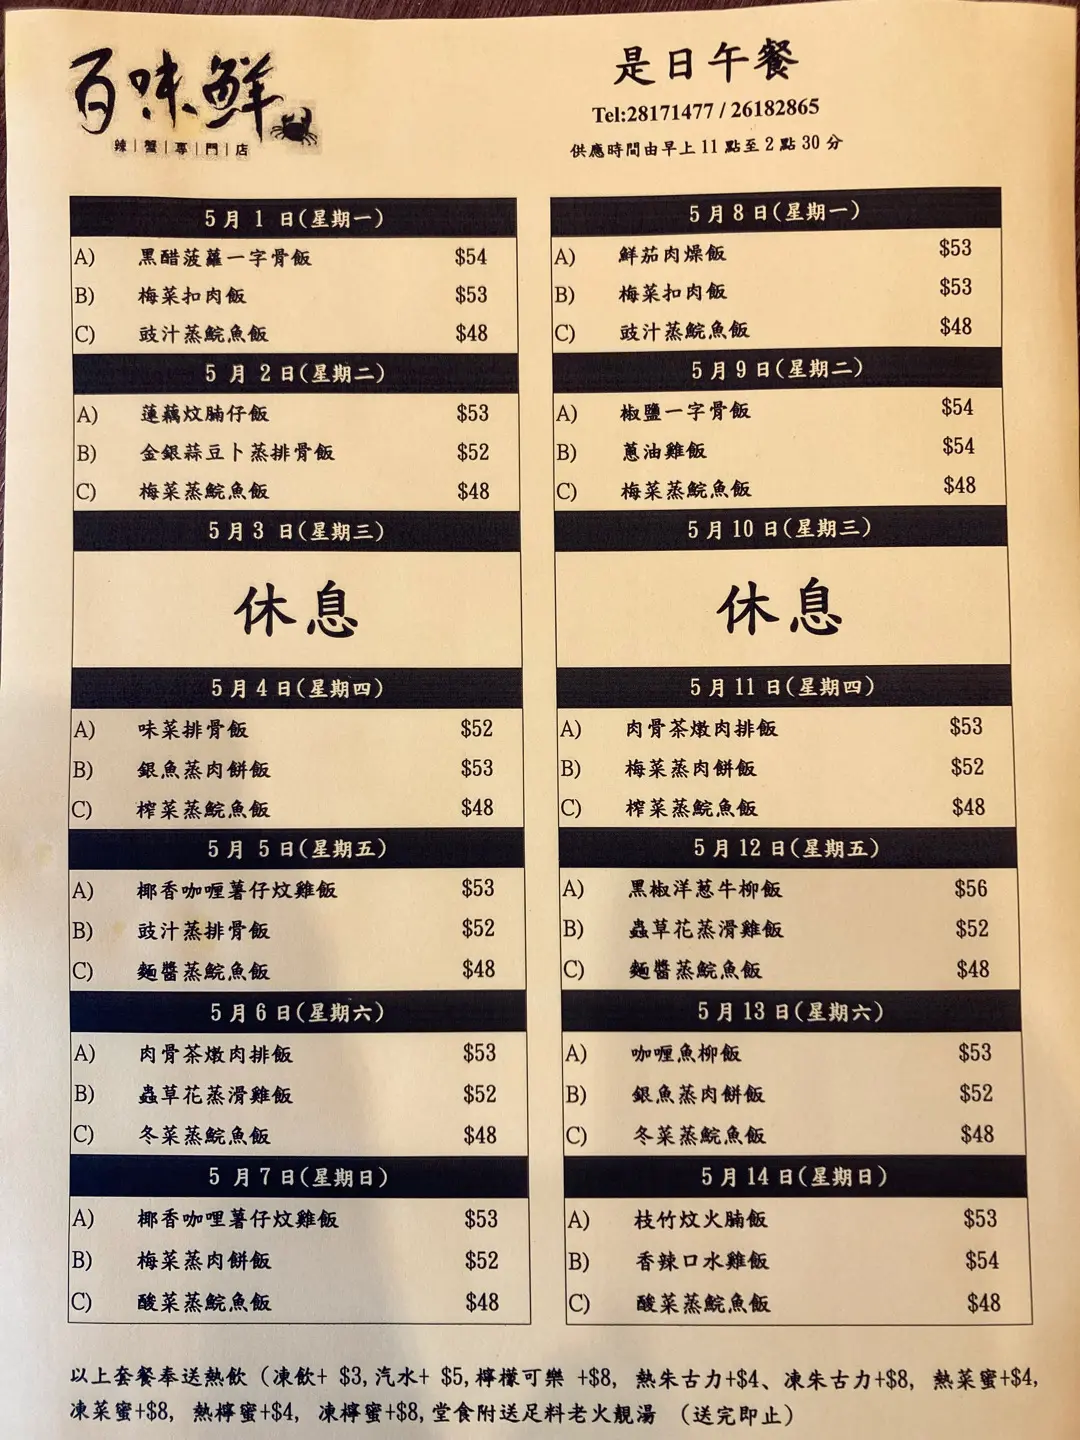 百味鮮
辣|蟹|專|門|店
是日午餐
Tel:28171477 / 26182865
供應時間由早上 11 點至 2 點 30 分
5 月 1 日(星期一)
A) 黑醋菠蘿一字骨飯 $54
B) 梅菜扣肉飯 $53
C) 豉汁蒸鯇魚飯 $48
5 月 2 日(星期二)
A) 蓮藕炆腩仔飯 $53
B) 金銀蒜豆卜蒸排骨飯 $52
C) 梅菜蒸鯇魚飯 $48
5 月 3 日(星期三)
休息
5 月 4 日(星期四)
A) 味菜排骨飯 $52
B) 銀魚蒸肉餅飯 $53
C) 榨菜蒸鯇魚飯 $48
5 月 5 日(星期五)
A) 椰香咖喱薯仔炆雞飯 $53
B) 豉汁蒸排骨飯 $52
C) 麵醬蒸鯇魚飯 $48
5 月 6 日(星期六)
A) 肉骨茶燉肉排飯 $53
B) 蟲草花蒸滑雞飯 $52
C) 冬菜蒸鯇魚飯 $48
5 月 7 日(星期日)
A) 椰香咖哩薯仔炆雞飯 $53
B) 梅菜蒸肉餅飯 $52
C) 酸菜蒸鯇魚飯 $48
5 月 8 日(星期一)
A) 鮮茄肉燥飯 $53
B) 梅菜扣肉飯 $53
C) 豉汁蒸鯇魚飯 $48
5 月 9 日(星期二)
A) 椒鹽一字骨飯 $54
B) 蔥油雞飯 $54
C) 梅菜蒸鯇魚飯 $48
5 月 10 日(星期三)
休息
5 月 11 日(星期四)
A) 肉骨茶燉肉排飯 $53
B) 梅菜蒸肉餅飯 $52
C) 榨菜蒸鯇魚飯 $48
5 月 12 日(星期五)
A) 黑椒洋葱牛柳飯 $56
B) 蟲草花蒸滑雞飯 $52
C) 麵醬蒸鯇魚飯 $48
5 月 13 日(星期六)
A) 咖喱魚柳飯 $53
B) 銀魚蒸肉餅飯 $52
C) 冬菜蒸鯇魚飯 $48
5 月 14 日(星期日)
A) 枝竹炆火腩飯 $53
B) 香辣口水雞飯 $54
C) 酸菜蒸鯇魚飯 $48
以上套餐奉送熱飲（凍飲+ $3, 汽水+ $5, 檸檬可樂 +$8, 熱朱古力+$4、凍朱古力+$8, 熱菜蜜+$4,
凍菜蜜+$8, 熱檸蜜+$4, 凍檸蜜+$8, 堂食附送足料老火靚湯 （送完即止）